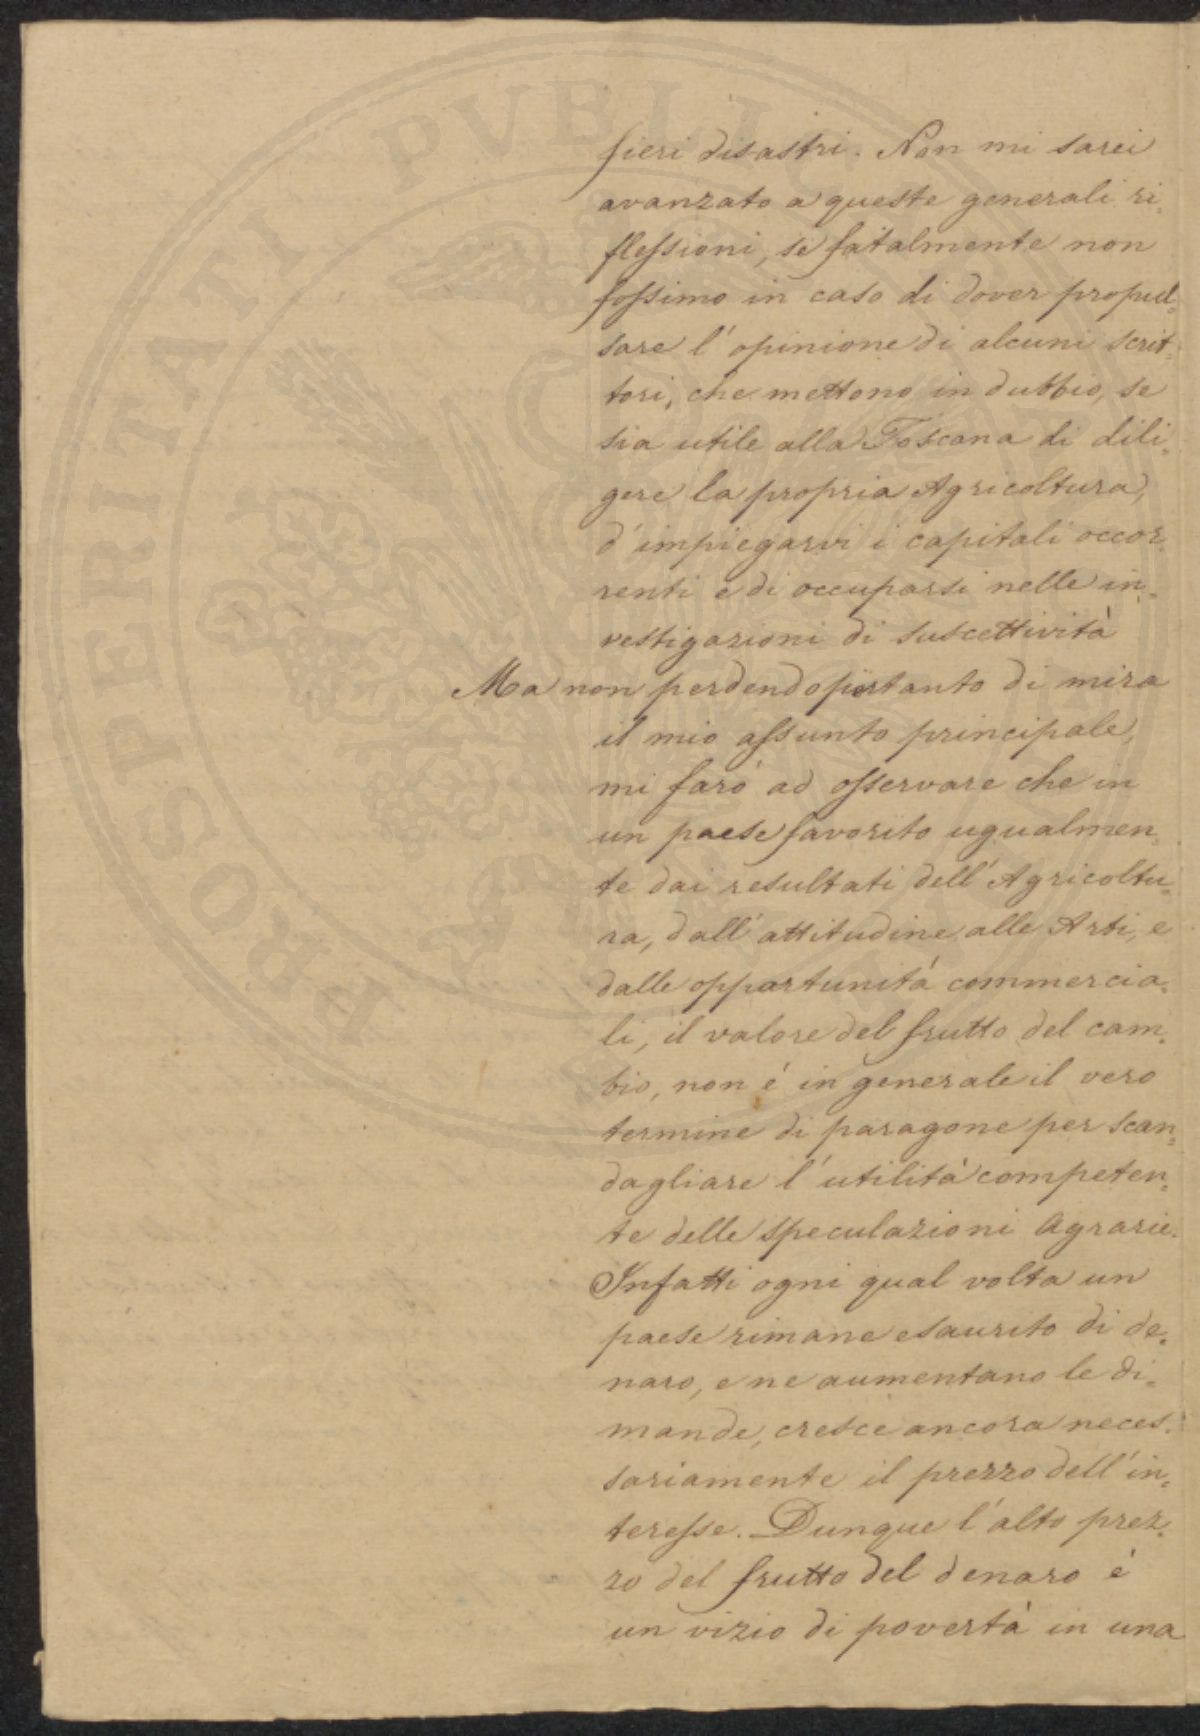 PROSPERITATI PVBLICAE
fieri disastri. Non mi sarei
avanzato a queste generali ri„
flessioni, se fatalmente non
fossimo in caso di dover propul„
sare l'opinione di alcuni scrit„
tori, che mettono in dubbio, se
sia utile alla Toscana di dili„
gere la propria Agricoltura,
d'impiegarvi i capitali occor„
renti e di occuparsi nelle in„
vestigazioni di suscettività
Ma non perdendo pertanto di mira
il mio assunto principale,
mi farò ad osservare che in
un paese favorito ugualmen„
te dai resultati dell'Agricoltu„
ra, dall'attitudine alle Arti, e
dalle opportunità commercia„
li, il valore del frutto del cam„
bio, non é in generale il vero
termine di paragone per scan„
dagliare l'utilità competen„
te delle speculazioni Agrarie.
Infatti ogni qual volta un
paese rimane esaurito di de„
naro, e ne aumentano le di„
mande, cresce ancora neces„
sariamente il prezzo dell'in„
teresse. Dunque l'alto prez„
zo del frutto del denaro é
un vizio di povertà in una